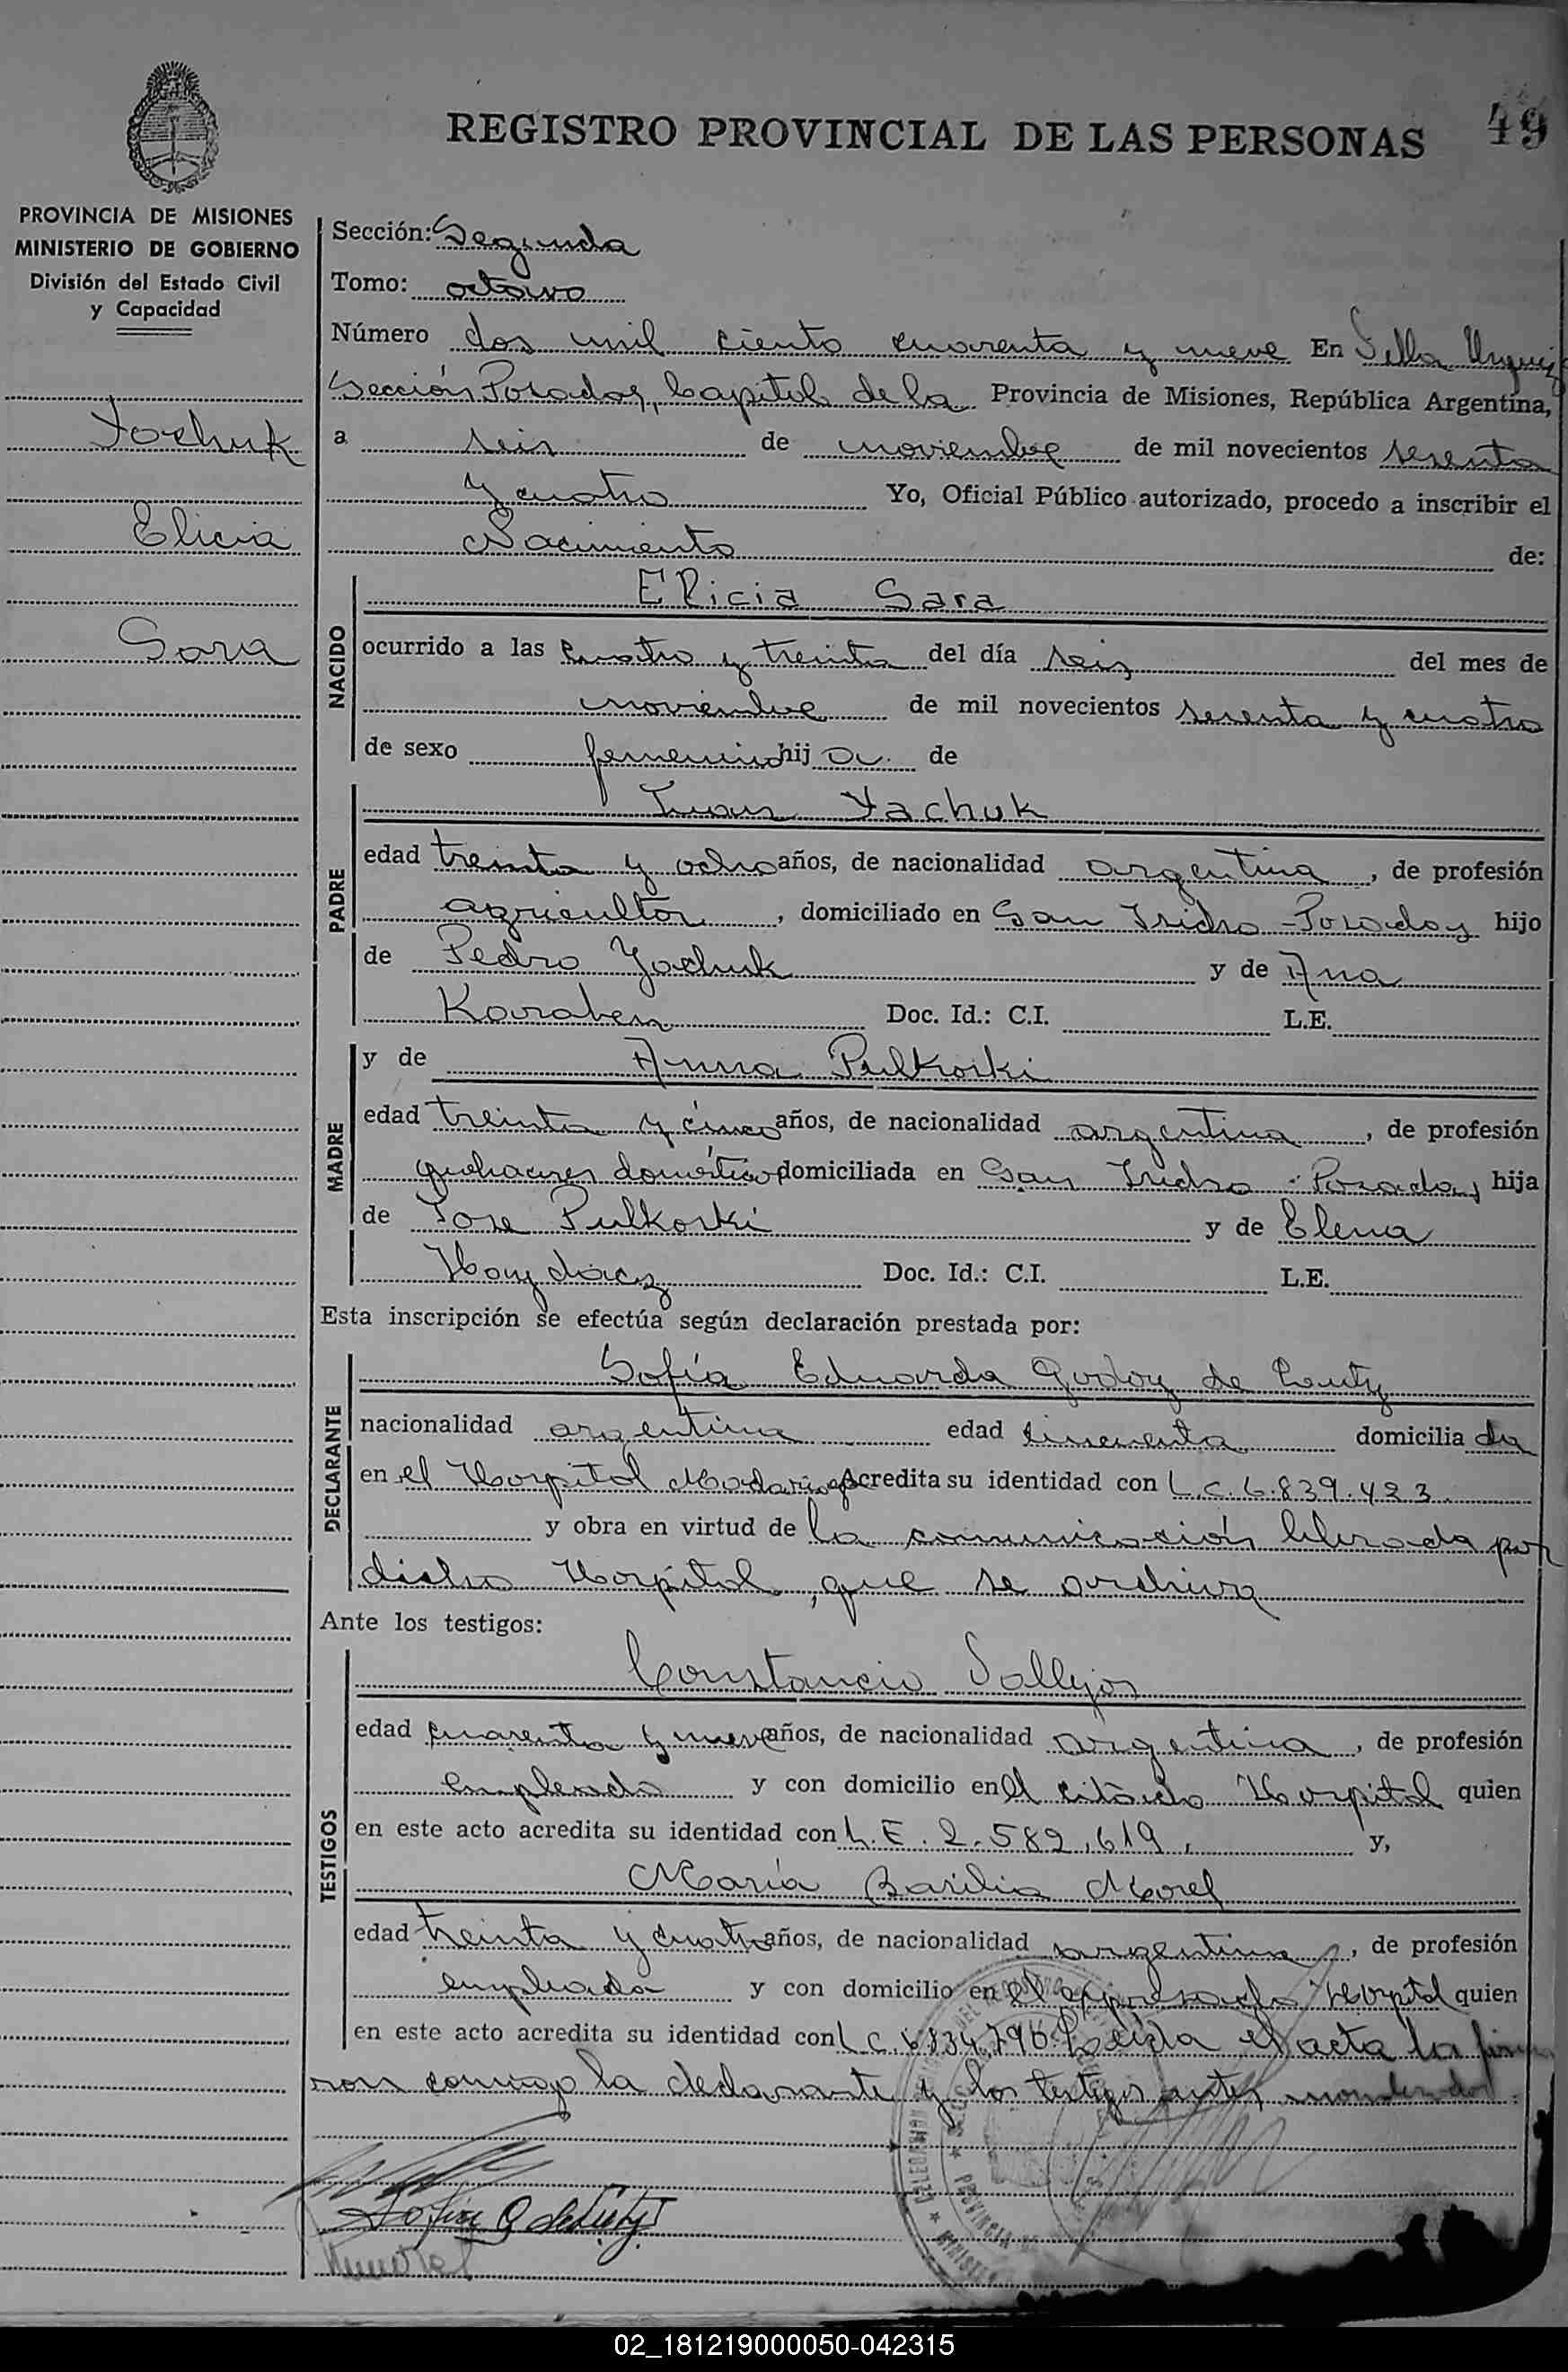 REGISTRO PROVINCIAL DE LAS PERSONAS 49
PROVINCIA DE MISIONES
MINISTERIO DE GOBIERNO
División del Estado Civil
y Capacidad
Yachuk
Elicia
Sara
Sección: Segunda
Tomo: octavo
Número dos mil ciento cuarenta y nueve En Villa Urquiz
Sección Posadas, Capital de la Provincia de Misiones, República Argentina,
a seis de noviembre de mil novecientos sesenta
y cuatro Yo, Oficial Público autorizado, procedo a inscribir el
Nacimiento de:
NACIDO
Elicia Sara
ocurrido a las cuatro y treinta del día seis del mes de
noviembre de mil novecientos sesenta y cuatro
de sexo femenino hija de
PADRE
Juan Yachuk
edad treinta y ocho años, de nacionalidad argentina, de profesión
agricultor, domiciliado en San Isidro - Posadas hijo
de Pedro Yachuk y de Ana
Karaben Doc. Id.: C.I. L.E.
MADRE
y de Anna Pulkoski
edad treinta y cinco años, de nacionalidad argentina, de profesión
quehaceres domésticos domiciliada en San Isidro - Posadas hija
de Jose Pulkoski y de Elena
Doc. Id.: C.I. L.E.
Esta inscripción se efectúa según declaración prestada por:
DECLARANTE
Sofía Eduarda Godoy de
nacionalidad argentina edad cincuenta domiciliada
en el Hospital Madariaga Acredita su identidad con L.C. 6.839.423
y obra en virtud de la comunicación librada por
dicho Hospital, que se archiva
Ante los testigos:
TESTIGOS
Constancio Vallejos
edad cuarenta y nueve años, de nacionalidad argentina, de profesión
empleado y con domicilio en el citado Hospital quien
en este acto acredita su identidad con L.E. 2.582.619, y,
María Basilia Morel
edad treinta y cuatro años, de nacionalidad argentina, de profesión
empleada y con domicilio en el expresado Hospital quien
en este acto acredita su identidad con L.C. 6834.796. Leída el acta la firma
ron conmigo la declarante y los testigos antes
02_181219000050-042315